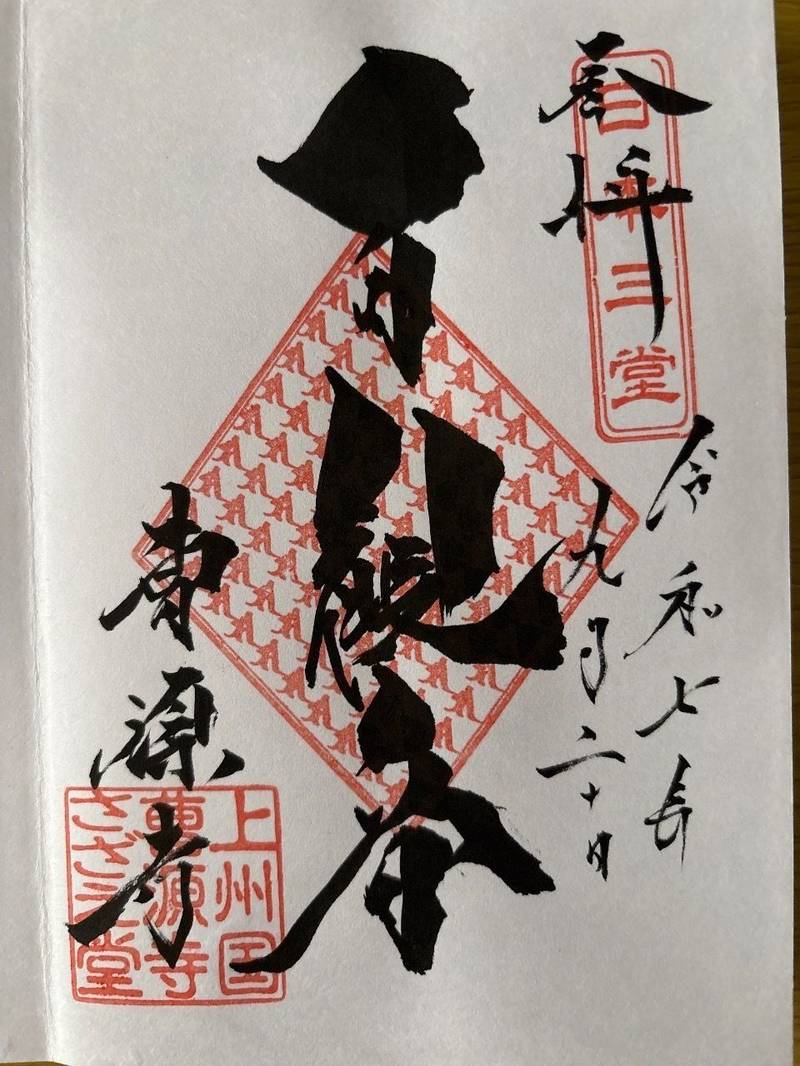 奉拝
日本三堂
令和七年
九月二十日
百観音
曹源寺
上州国
曹源寺
さざえ堂